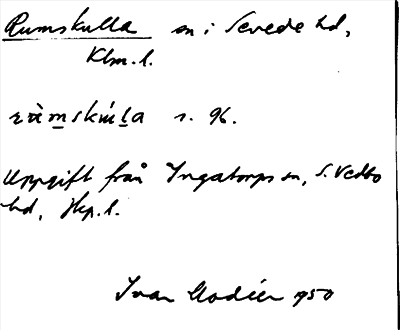 Rumskulla sn i Sevede hd,
Klm. l.
rùmskúl̲a s. 96.
Uppgift från Ingatorps sn, S. Vedbo
hd, Jkp. l.
Ivar Modéer 1950